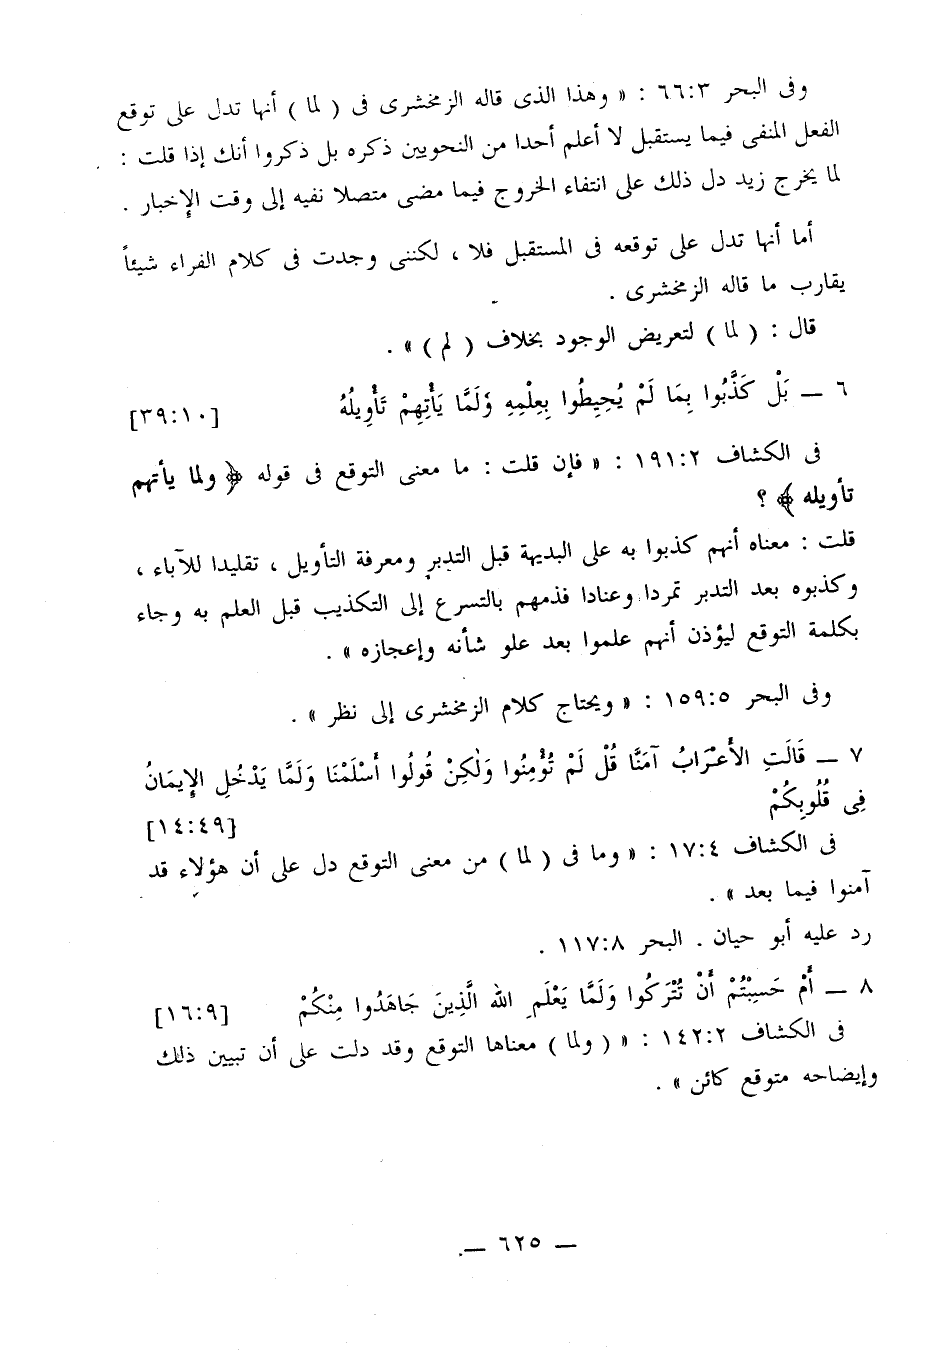 وفى البحر ٦٦:٣ : « وهذا الذى قاله الزمخشرى فى ( لما ) أنها تدل على توقع
الفعل المنفى فيما يستقبل لا أعلم أحدا من النحويين ذكره بل ذكروا أنك إذا قلت :
لما يخرج زيد دل ذلك على انتفاء الخروج فيما مضى متصلا نفيه إلى وقت الإخبار .
أما أنها تدل على توقعه فى المستقبل فلا ، لكننى وجدت فى كلام الفراء شيئاً
يقارب ما قاله الزمخشرى .
قال : ( لما ) لتعريض الوجود بخلاف ( لم ) » .
٦ — بَلْ كَذَّبُوا بِمَا لَمْ يُحِيطُوا بِعِلْمِهِ وَلَمَّا يَأْتِهِمْ تَأْوِيلُهُ [٣٩:١٠]
فى الكشاف ١٩١:٢ : « فإن قلت : ما معنى التوقع فى قوله ﴿ ولما يأتهم
تأويله ﴾ ؟
قلت : معناه أنهم كذبوا به على البديهة قبل التدبر ومعرفة التأويل ، تقليدا للآباء ،
وكذبوه بعد التدبر تمردا وعنادا فذمهم بالتسرع إلى التكذيب قبل العلم به وجاء
بكلمة التوقع ليؤذن أنهم علموا بعد علو شأنه وإعجازه » .
وفى البحر ١٥٩:٥ : « ويحتاج كلام الزمخشرى إلى نظر » .
٧ — قَالَتِ الأَعْرَابُ آمَنَّا قُلْ لَمْ تُؤْمِنُوا وَلَٰكِنْ قُولُوا أَسْلَمْنَا وَلَمَّا يَدْخُلِ الإِيمَانُ
فِى قُلُوبِكُمْ [١٤:٤٩]
فى الكشاف ١٧:٤ : « وما فى ( لما ) من معنى التوقع دل على أن هؤلاء قد
آمنوا فيما بعد » .
رد عليه أبو حيان . البحر ١١٧:٨ .
٨ — أَمْ حَسِبْتُمْ أَنْ تُتْرَكُوا وَلَمَّا يَعْلَمِ الله الَّذِينَ جَاهَدُوا مِنْكُمْ [١٦:٩]
فى الكشاف ١٤٢:٢ : « ( ولما ) معناها التوقع وقد دلت على أن تبيين ذلك
وإيضاحه متوقع كائن » .
— ٦٢٥ —